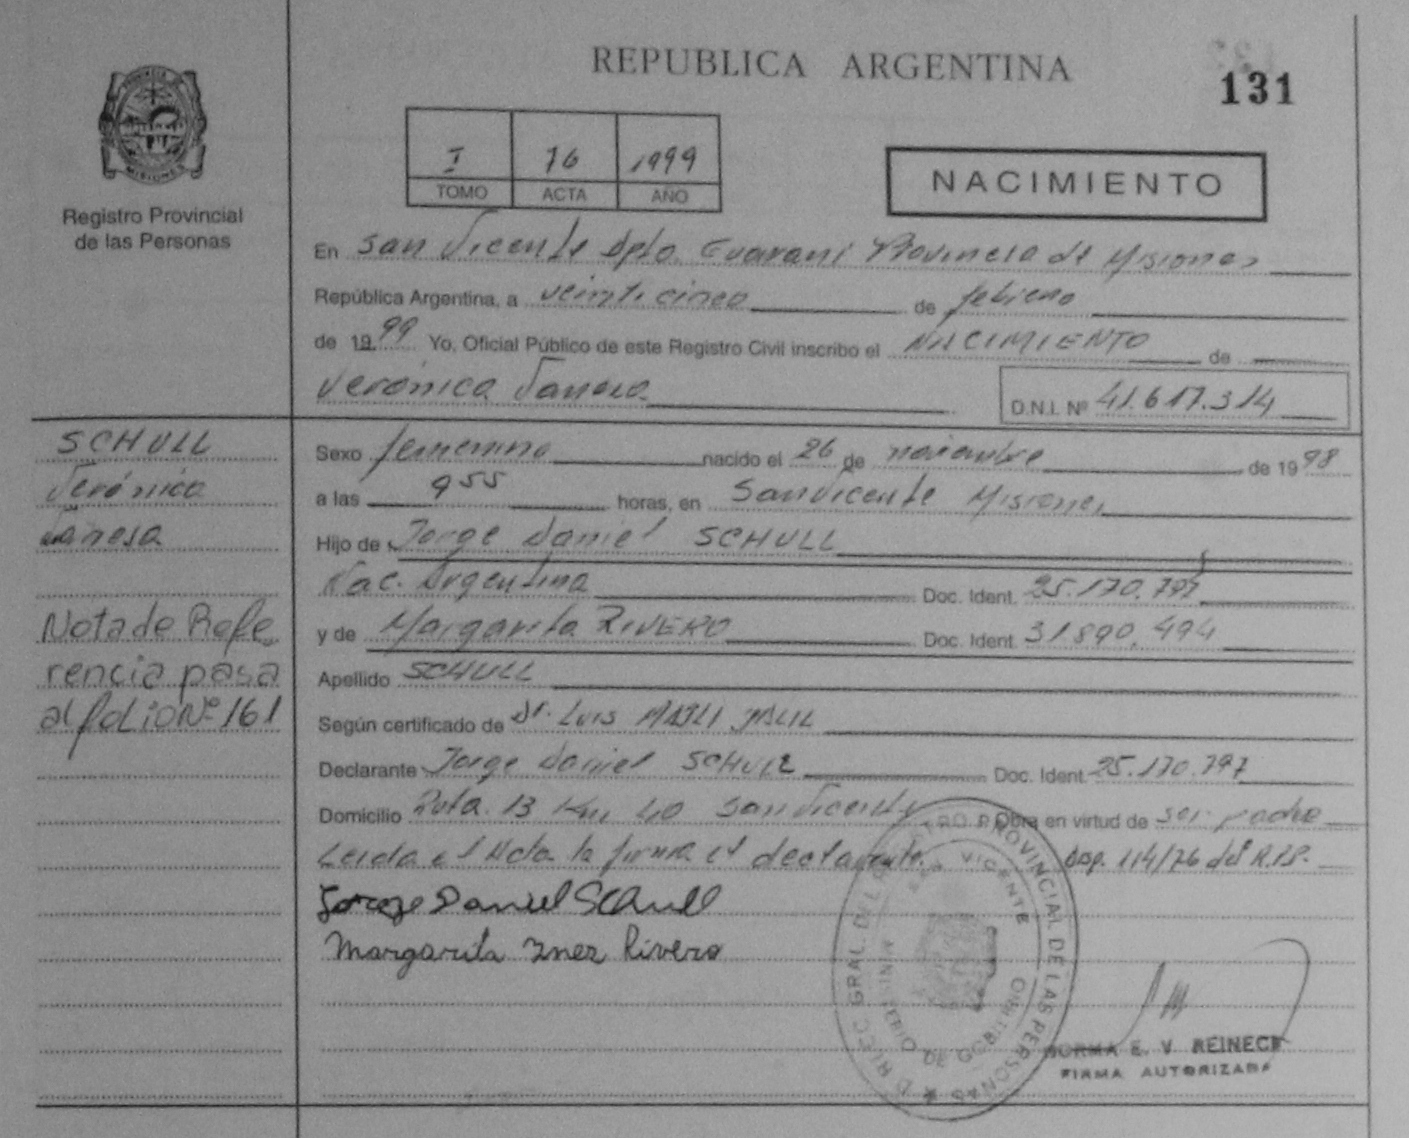 REPUBLICA ARGENTINA
131
PROVINCIA DE
MISIONES
Registro Provincial
de las Personas
I 76 1999
TOMO ACTA AÑO
NACIMIENTO
En San Vicente Dpto. Guaraní Provincia de Misiones
República Argentina, a veinticinco de febrero
de 1999 Yo, Oficial Público de este Registro Civil inscribo el NACIMIENTO de
Verónica Vanesa
D.N.I. Nº 41.617.314
SCHULL
Verónica
Vanesa
Nota de Refe
rencia pasa
al folio Nº 161
Sexo femenino nacido el 26 de noviembre de 1998
a las 9 55 horas, en San Vicente Misiones
Hijo de Jorge Daniel SCHULL
Nac. Argentina Doc. Ident. 25.170.797
y de Margarita RIVERO Doc. Ident. 31.890.494
Apellido SCHULL
Según certificado de Dr. Luis JALIL
Declarante Jorge Daniel SCHULL Doc. Ident. 25.170.797
Domicilio Ruta 13 Km 40 San Vicente Obra en virtud de ser padre
Leida el Acta la firma el declarante. Disp. 114/76 del R.P.P.
Jorge Daniel Schull
Margarita Inez Rivero
DIREC. GRAL. DEL REGISTRO PROVINCIAL DE LAS PERSONAS
SAN VICENTE
MINISTERIO DE GOBIERNO
NORMA E. V. REINECK
FIRMA AUTORIZADA